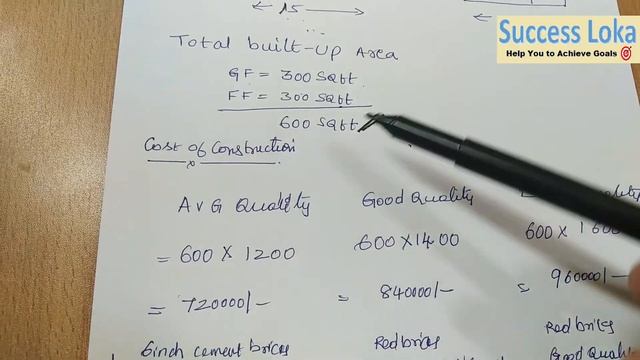 Success Loka
Help You to Achieve Goals 🎯
← 15 →
Total built-up Area
GF = 300 Sqft
FF = 300 Sqft
600 Sqft
Cost of Construction
AVG Quality
Good Quality
= 600 X 1200
600 X 1400
600 X 1600
= 720000/-
= 84000/-
= 960000/-
6inch cement brics
Red brics
Red brics
Good Quali